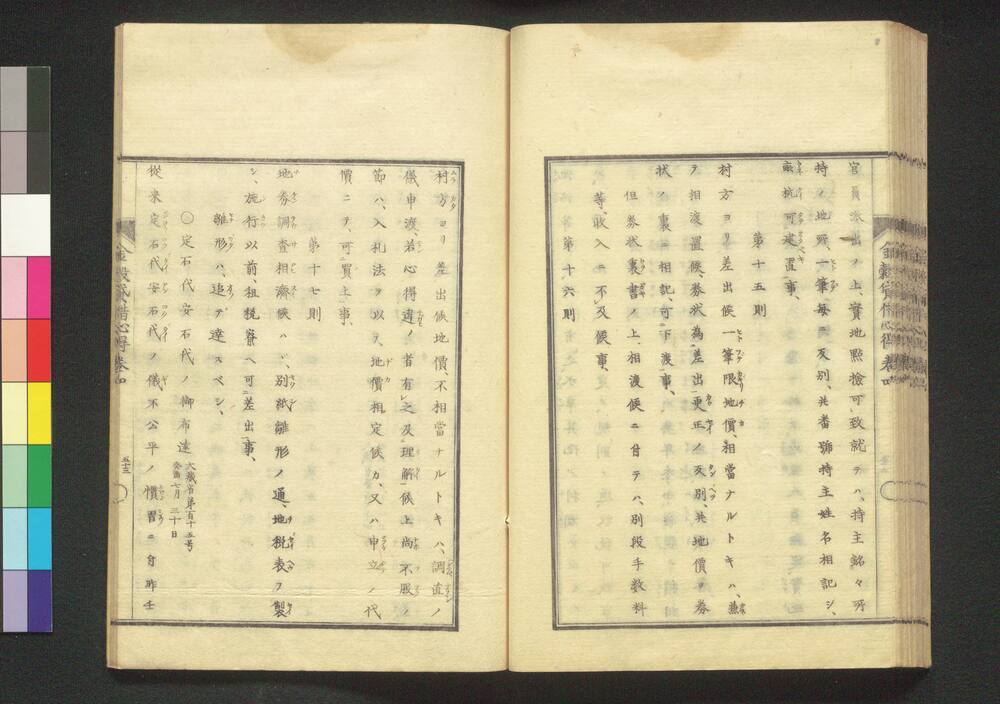 官員派出ノ上、實地點檢可致就テハ、持主銘々所
持ノ地所、一筆毎ニ反別、共番號持主姓名相記シ、
杭可建置事、
第十五則
村方ヨリ差出候一筆限地價、相當ナルトキハ、兼
テ相渡置候、券状為差出更正ノ反別、共地價ヲ券
状ノ裏ニ相記、可下渡事、
但券状裏書ノ上、相渡候ニ付テハ、別段手数料
等、收入ニ不及候事、
第十六則
村方ヨリ差出候地價、不相當ナルトキハ、調直ノ
儀申渡、若心得違ノ者有之及理解候上尚不服ノ
節ハ、入札法ヲ以テ地價相定候カ、又ハ申立ノ代
價ニテ、可買上事、
第十七則
地券調査相濟候ハヽ、別紙雛形ノ通、地税表ヲ製
シ、施行以前、租税寮ヘ可差出事、
雛形ハ、追テ達スベシ、
○定石代安石代ノ御布達 大藏省第百十五号 癸酉七月三十日
從来定石代安石代ノ儀不公平ノ慣習ニ付昨壬
金穀貸借心得 卷四
五十三